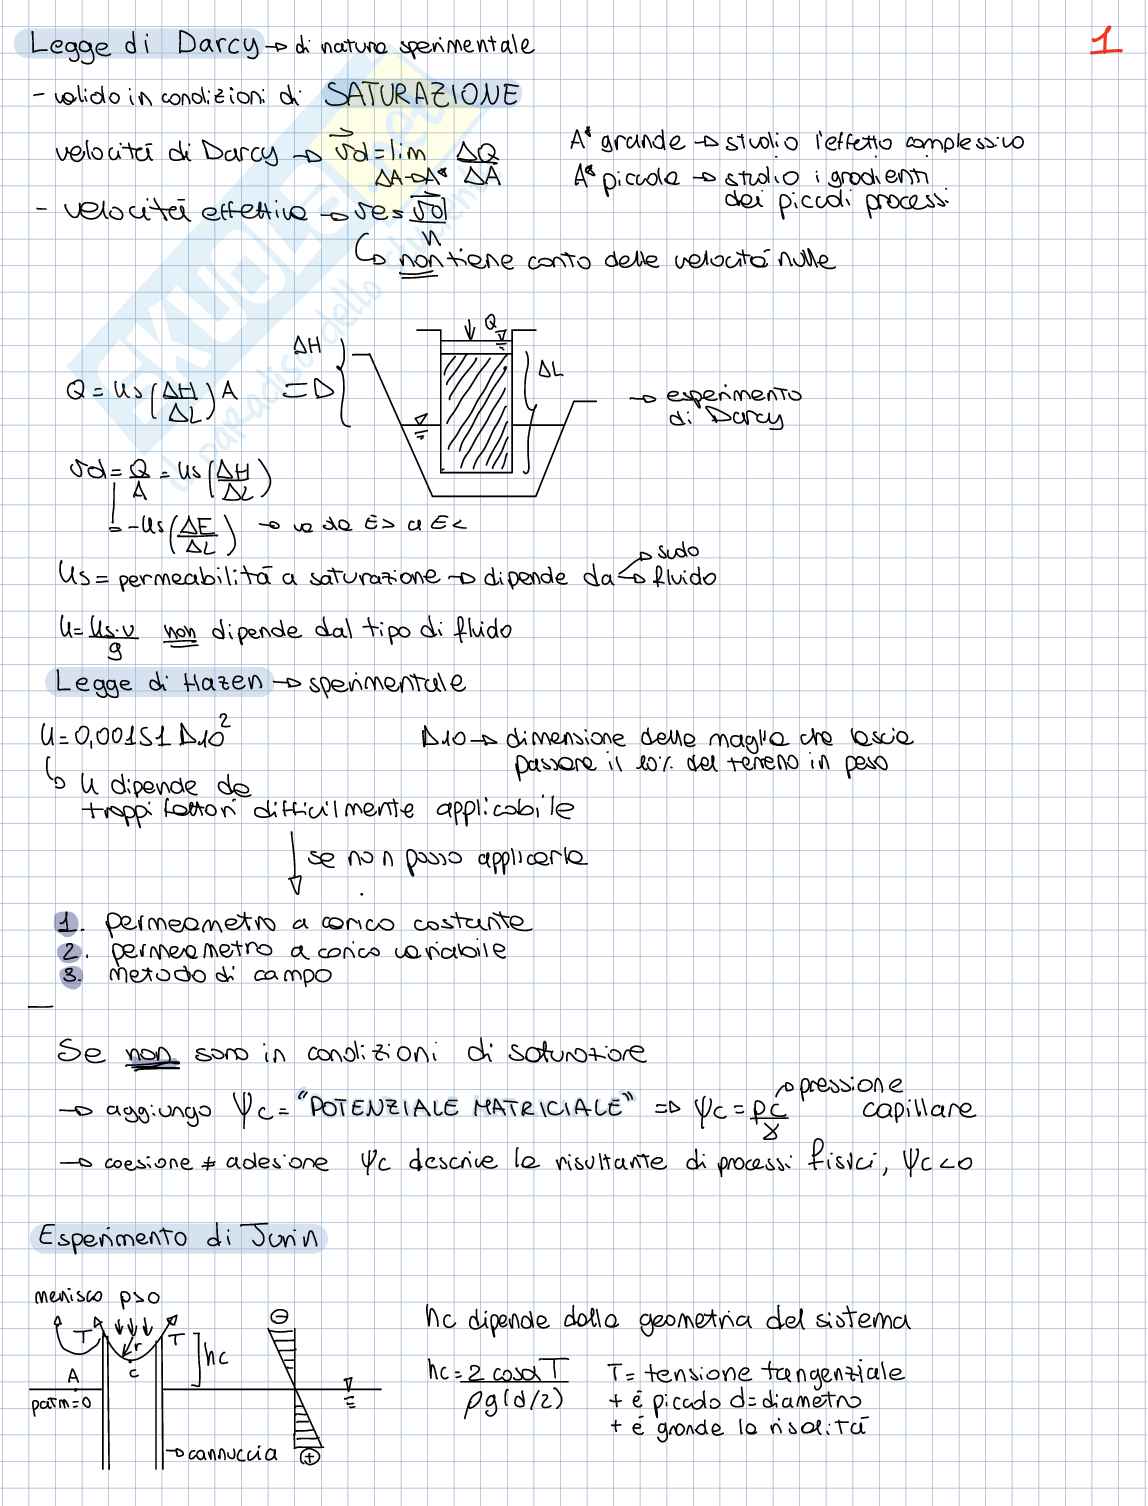 Legge di Darcy → di natura sperimentale
1
- valido in condizioni di SATURAZIONE
velocità di Darcy → vd = lim ΔQ/ΔA
ΔA→A*
A* grande → studio l'effetto complessivo
A* piccola → studio i gradienti
dei piccoli processi
- velocità effettiva → ve = vd/n
↳ non tiene conto delle velocità nulle
ΔH
Q
ΔL
Q = Ks (ΔH/ΔL) A ⇒
→ esperimento
di Darcy
vd = Q/A = Ks (ΔH/ΔL)
→ -Ks (ΔE/ΔL) → va da E> a E<
Ks = permeabilità a saturazione → dipende da → suolo
→ fluido
K = Ks·ν/g non dipende dal tipo di fluido
Legge di Hazen → sperimentale
K = 0,00151 D10²
D10 → dimensione delle maglie che lascia
passare il 10% del terreno in peso
↳ K dipende da
troppi fattori difficilmente applicabile
↓ se non posso applicarla
1. permeametro a carico costante
2. permeametro a carico variabile
3. metodo di campo
Se non sono in condizioni di saturazione
→ aggiungo ψc = "POTENZIALE MATRICIALE" ⇒ ψc = pc/γ → pressione
capillare
→ coesione ≠ adesione ψc descrive la risultante di processi fisici, ψc<0
Esperimento di Jurin
menisco p>0
T
T
r
hc
A
c
patm=0
→ cannuccia
⊖
⊕
hc dipende dalla geometria del sistema
hc = 2 cosα T / ρg(d/2)
T = tensione tangenziale
+ é piccolo d = diametro
+ é grande la risalità
SKUOLA.net
il paradiso dello studente